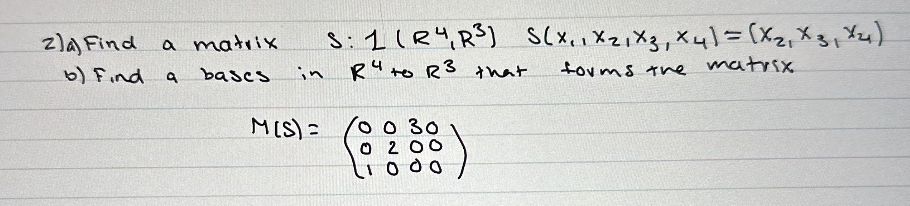 2)a) Find a matrix S: 1 (R⁴, R³) S(x₁, x₂, x₃, x₄) = (x₂, x₃, x₄)
b) Find a bases in R⁴ to R³ that forms the matrix
M(S) = (0 0 3 0
0 2 0 0
1 0 0 0)